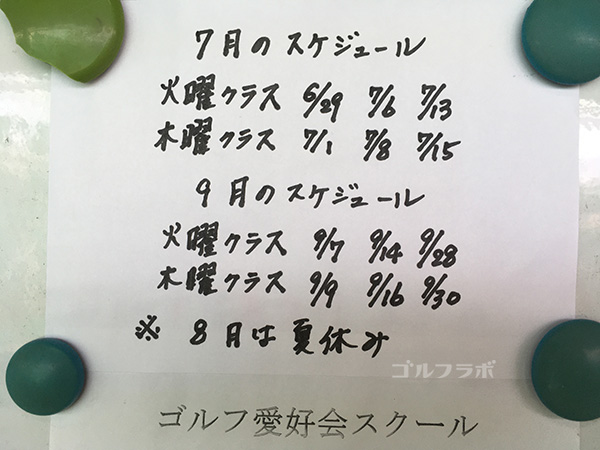 7月のスケジュール
火曜クラス 6/29 7/6 7/13
木曜クラス 7/1 7/8 7/15
9月のスケジュール
火曜クラス 9/7 9/14 9/28
木曜クラス 9/9 9/16 9/30
※ 8月は夏休み
ゴルフラボ
ゴルフ愛好会スクール